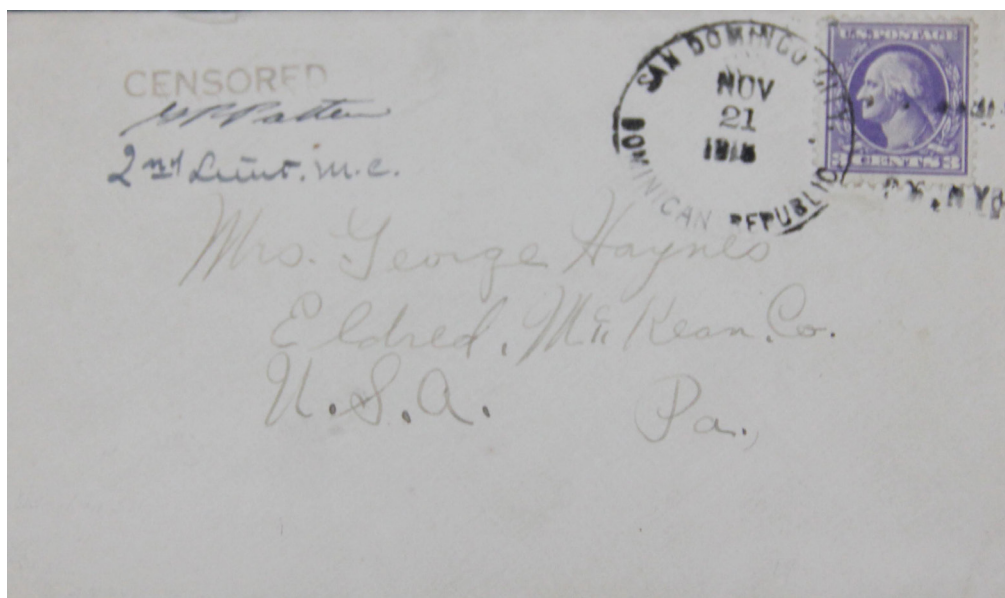 CENSORED
Patten
2nd Lieut. M.C.
SAN DOMINGO CITY.
NOV
21
1918
DOMINICAN REPUBLIC
U.S. POSTAGE
3 CENTS 3
Mrs. George Haynes
Eldred, McKean, Co.
U.S.A. Pa.,